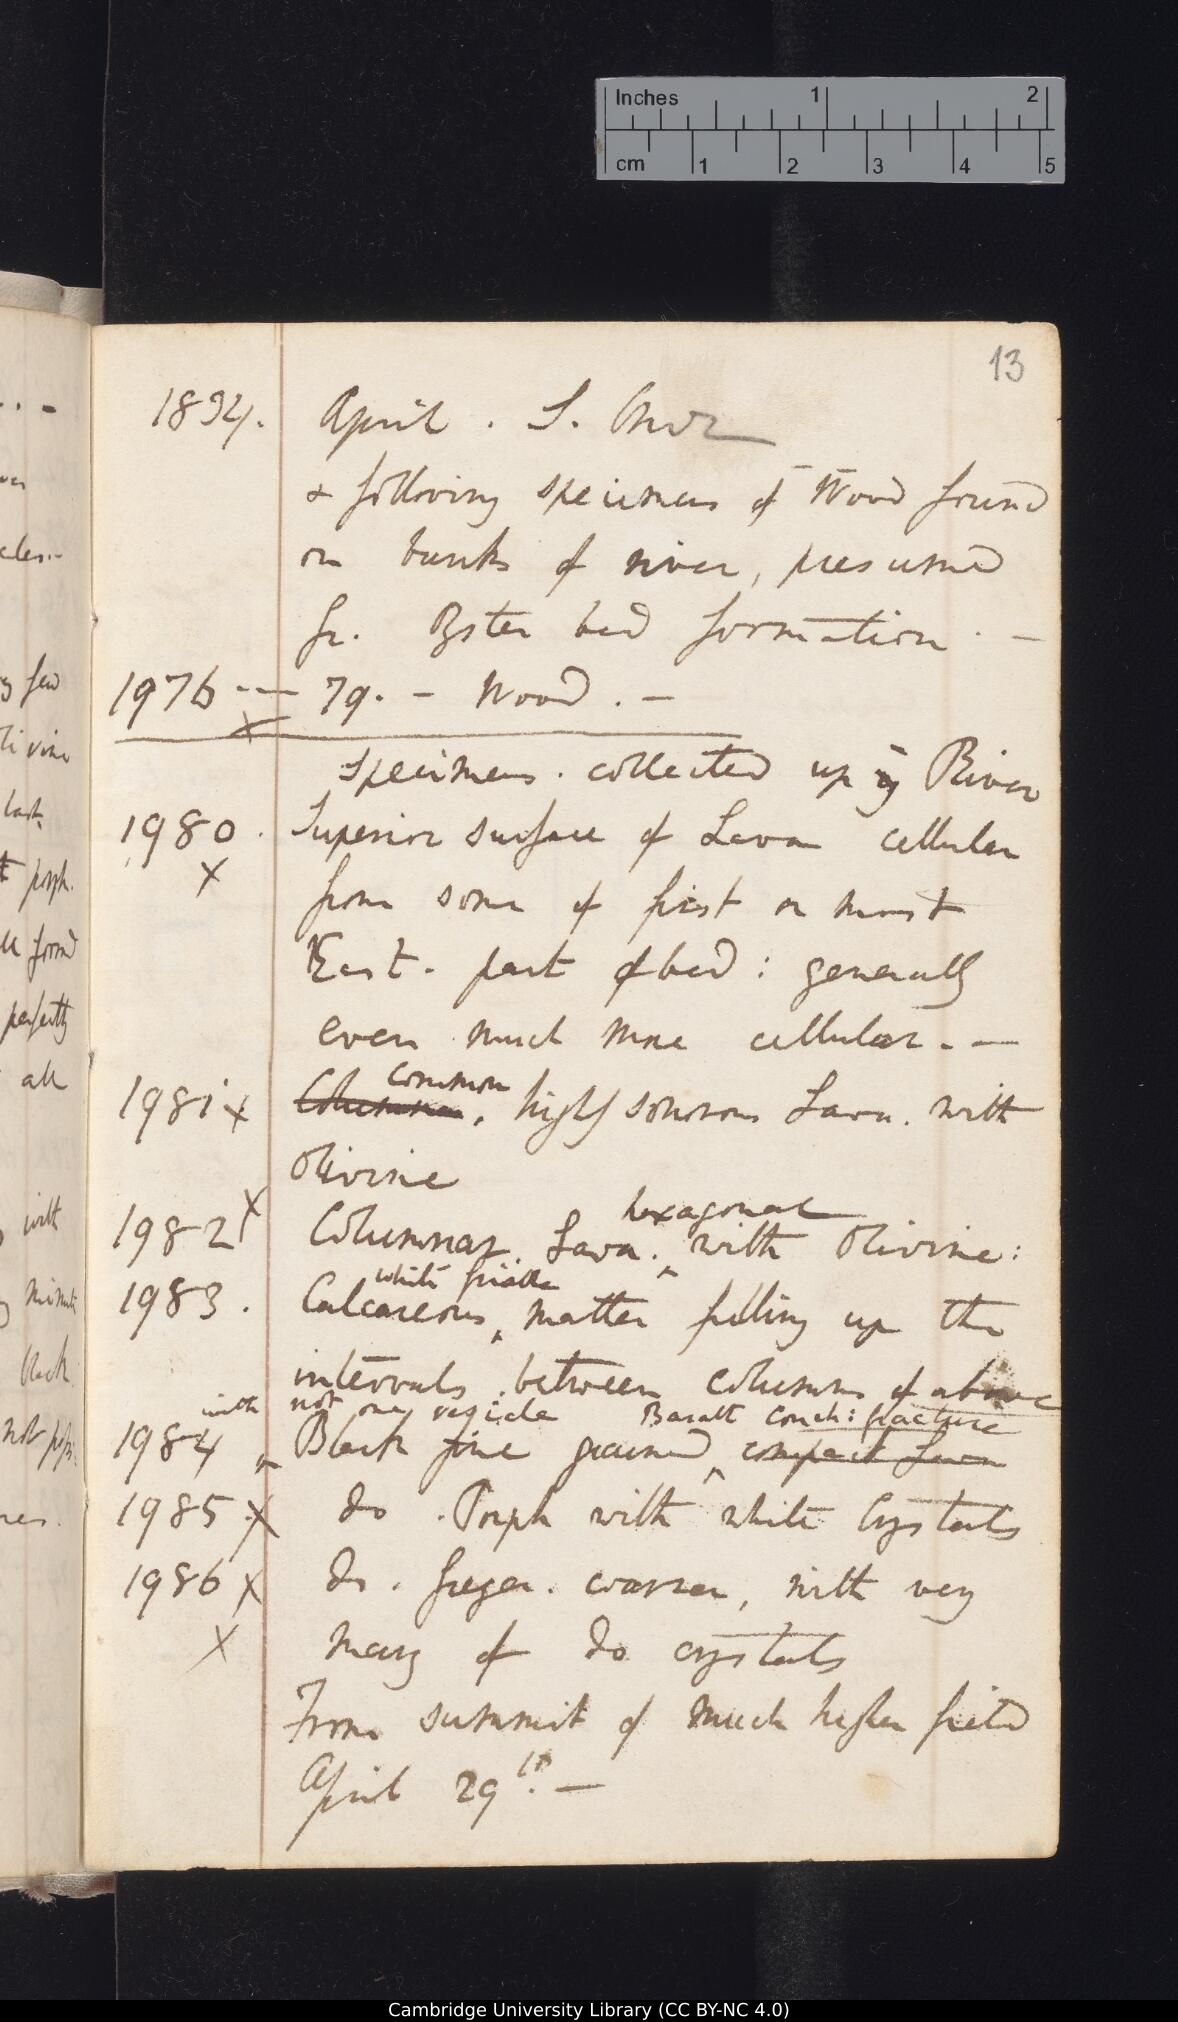 Inches 1 2
cm 1 2 3 4 5
13
1834. April . S. Cruz
& following specimens of Wood found
on banks of river, presumed
fr. Oyster bed formation . —
1976 --- 79. - Wood . —
x
Specimens . collected up y River
1980 . Superior surface of Lava cellular
x
from some of first or most
East. part of bed : generally
even much more cellular. —
common
1981 x Columnar, highly sonorous Lava. with
Olivine
x hexagonal
1982 Columnar. Lava. ^ with Olivine:
white friable
1983. Calcareous ^ matter filling up the
intervals between columns of above
with not one vesicle Basalt conch: fracture
1984 ^ Black fine grained ^ compact Lava
1985 x do . Porph with white Crystals
1986 x do . coarser, with very
x many of do crystals
From summit of much higher field
April 29th. —
ver
cles.-
few
livine
last.
porph.
found
perfectly
all
with
minute
black
not
Cambridge University Library (CC BY-NC 4.0)